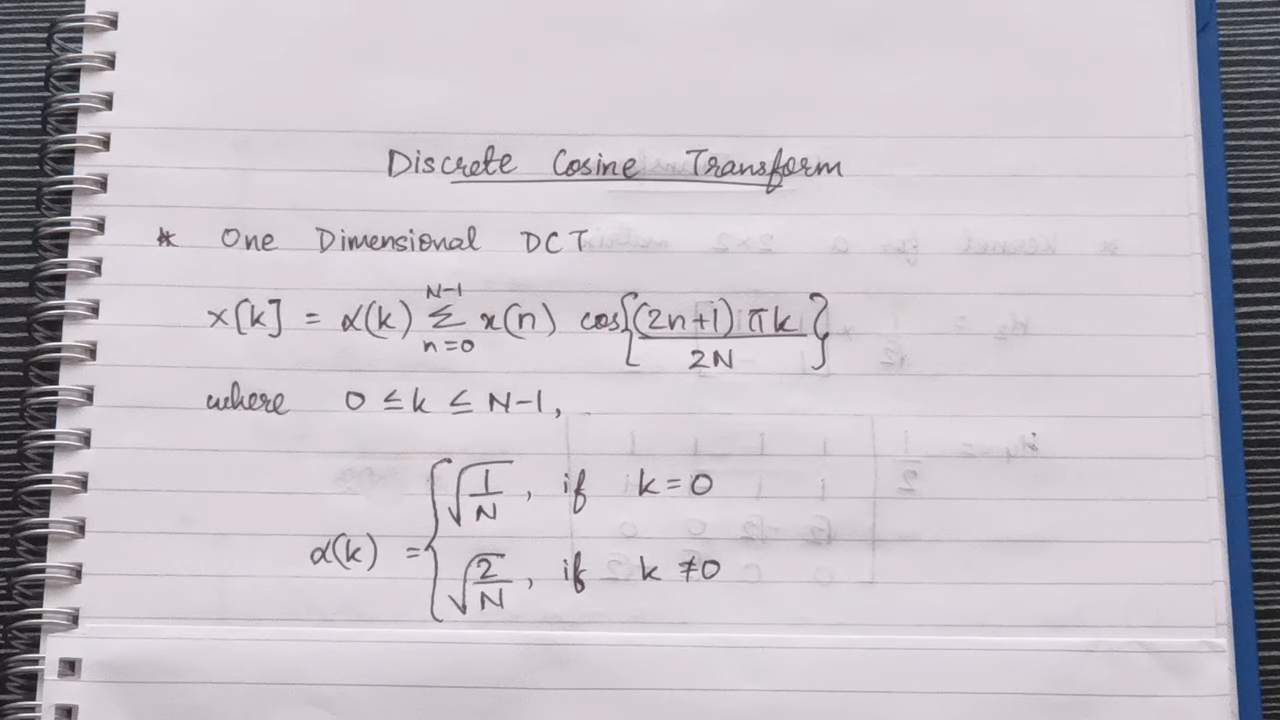 Discrete Cosine Transform
* One Dimensional DCT
x[k] = α(k) Σ_{n=0}^{N-1} x(n) cos{(2n+1)πk / 2N}
where 0 ≤ k ≤ N-1,
α(k) = { √(1/N), if k = 0
√(2/N), if k ≠ 0